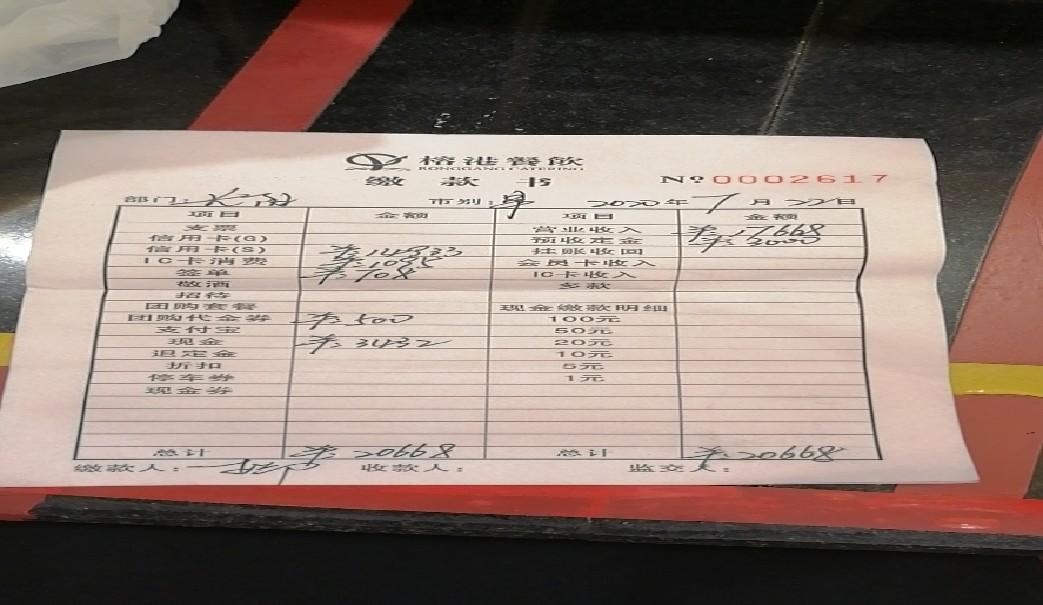 榕港餐飲
RONGGANG CATERING
缴款书 Nº0002617
部门: 市别: 2020年7月22日
项目 金额 项目 金额
支票 营业收入 ¥17668
信用卡(G) 预收定金 ¥3000
信用卡(S) ¥14933 挂账收回
IC卡消费 ¥1095 会员卡收入
签单 ¥708 IC卡收入
敬酒 多款
招待
团购套餐 现金缴款明细
团购代金券 ¥500 100元
支付宝 50元
现金 ¥3432 20元
退定金 10元
折扣 5元
停车券 1元
现金券
总计 ¥20668 总计 ¥20668
缴款人: 收款人: 监交人: